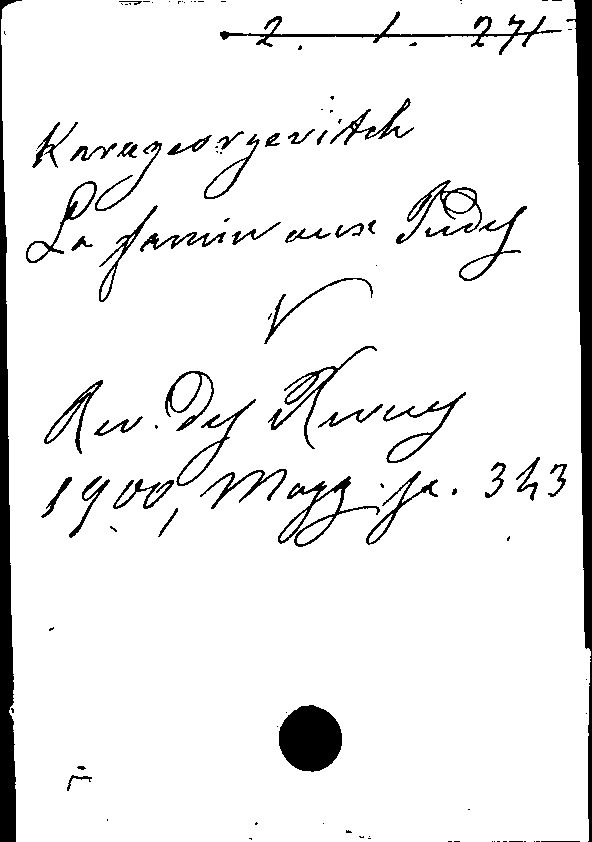 2. 1. 271
Karageorgevitch
La famin aux Indes
Rev. des Revues
1900, Magg. pa. 343